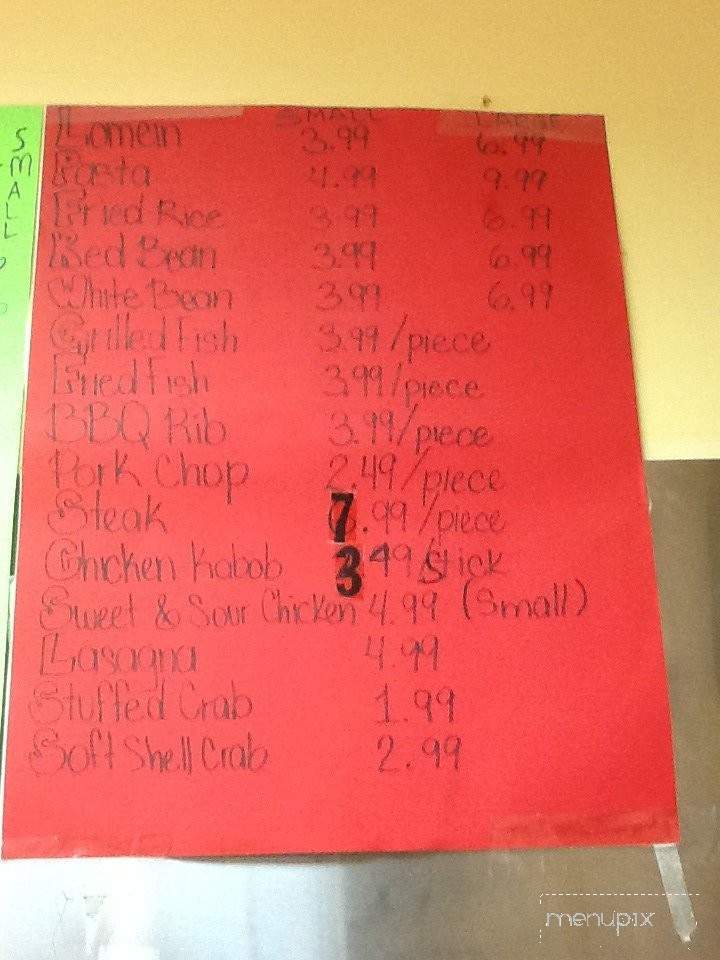 SMALL LARGE
Lomein 3.99 6.99
Pasta 4.99 9.99
Fried Rice 3.99 6.99
Red Bean 3.99 6.99
White Bean 3.99 6.99
Grilled Fish 3.99/piece
Fried Fish 3.99/piece
BBQ Rib 3.99/piece
Pork Chop 2.49/piece
Steak 7.99/piece
Chicken Kabob 3.49/stick
Sweet & Sour Chicken 4.99 (Small)
Lasagna 4.99
Stuffed Crab 1.99
Soft Shell Crab 2.99
SMALL
menupix